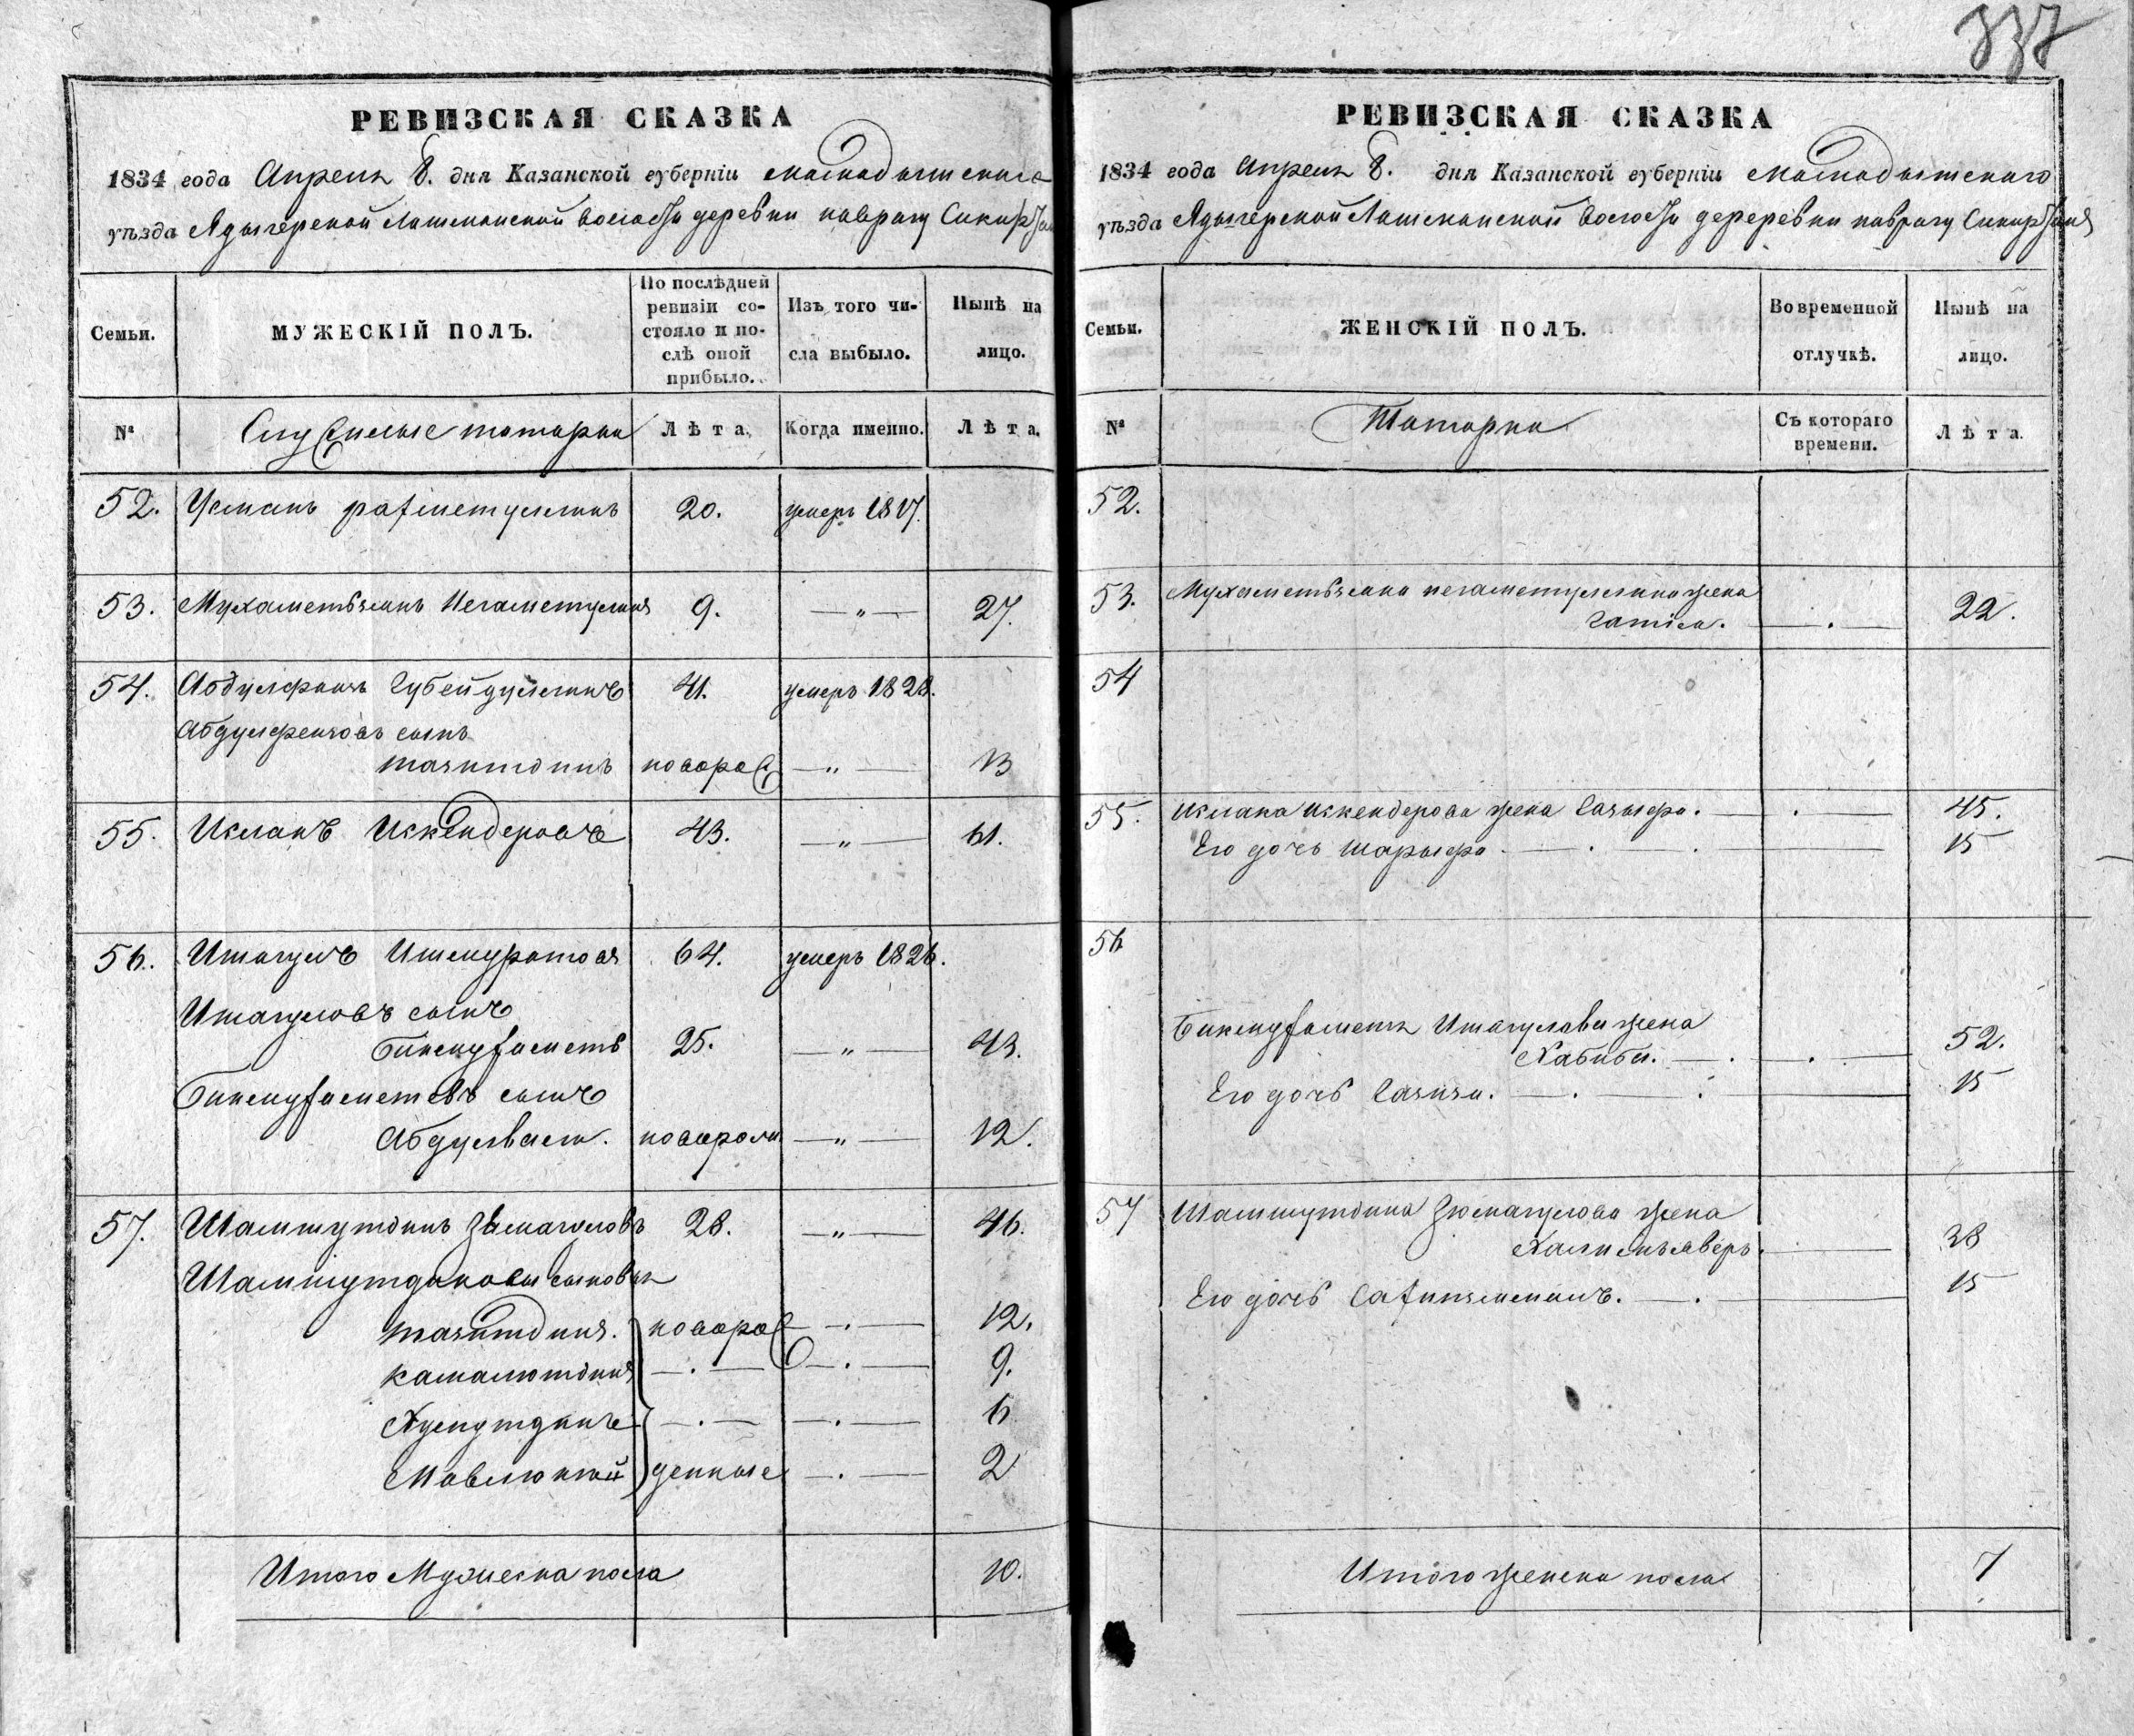 337
РЕВИЗСКАЯ СКАЗКА
1834 года Апреля 8. дня Казанской губерніи Мамадышскаго
уѣзда Ядыгерской Лашманской волости деревни поврагу Сикиртан
Семьи.
МУЖЕСКІЙ ПОЛЪ.
По послѣдней ревизіи состояло и послѣ оной прибыло.
Изъ того числа выбыло.
Нынѣ на лицо.
№
Служилые татары
Лѣта.
Когда именно.
Лѣта.
52. Усманъ рахметуллинъ 20. умеръ 1817.
53. Мухаметьзянъ Негаметуллинъ 9. — „ — 27.
54. Абдулфаизъ Губейдуллинъ 41. умеръ 1828.
Абдулфеизовъ сынъ
тазитдинъ новорож — „ — 13
55. Исланъ Искендеровъ 43. — „ — 61.
56. Ишагулъ Ишмуратовъ 64. умеръ 1826.
Ишагуловъ сынъ
Бикмухаметъ 25. — „ — 43.
Бикмухаметевъ сынъ
Абдулвали. новорож — „ — 12.
57. Шамшутдинъ Зюмагуловъ 28. — „ — 46.
Шамшутдиновы сыновья
тазитдинъ. новорож — . — 12.
камалютдинъ — . — — . — 9.
Хузмутдинъ — . — — . — 6
Мавлюкай денные — . — 2
Итого Мужеска пола 10.
РЕВИЗСКАЯ СКАЗКА
1834 года Апреля 8. дня Казанской губерніи Мамадышскаго
уѣзда Ядыгерской Лашманской волости дереревни поврагу Сикиртаня
Семьи.
ЖЕНСКІЙ ПОЛЪ.
Во временной отлучкѣ.
Нынѣ на лицо.
№
Татарки
Съ котораго времени.
Лѣта.
52.
53. Мухаметьзяна негаметуллина жена
Гатіса. — . — 22.
54
55. Ислана Искендерова жена Сазыфа. — . — 45.
Его дочь Шарыфа — . — . — 15
56
Бикмухамета Ишагулова жена
Хабиба. — . — . — 52.
Его дочь Газиза. — . — . — 15
57 Шамшутдина Зюмагулова жена
Халимъзяверъ. — 38
Его дочь Сахипземалъ. — . — 15
Итого женска пола 7